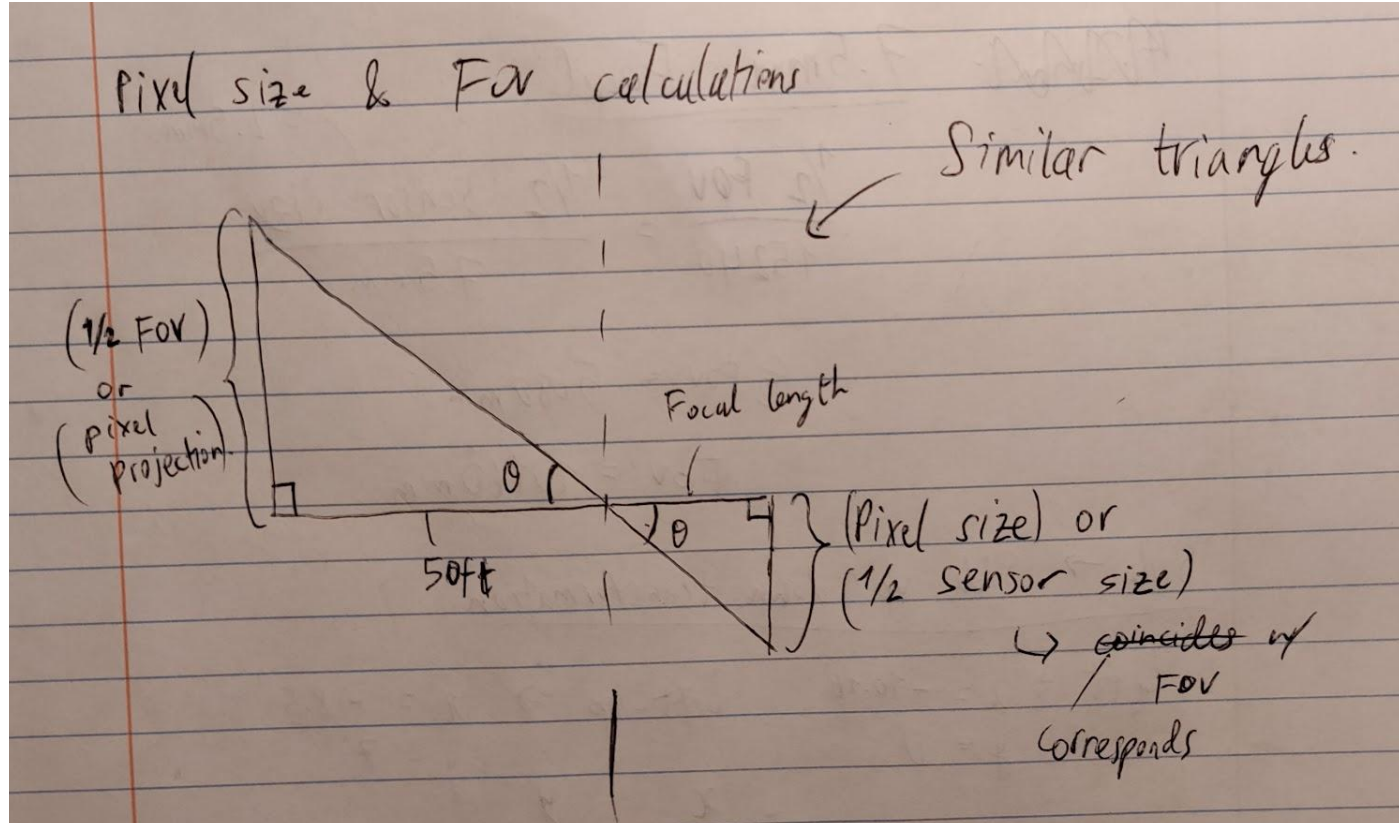 Pixel size & FOV calculations
Similar triangles.
(1/2 FOV)
or
(pixel
projection)
θ
50ft
Focal length
θ
(Pixel size) or
(1/2 sensor size)
↳ coincides w/
FOV
corresponds